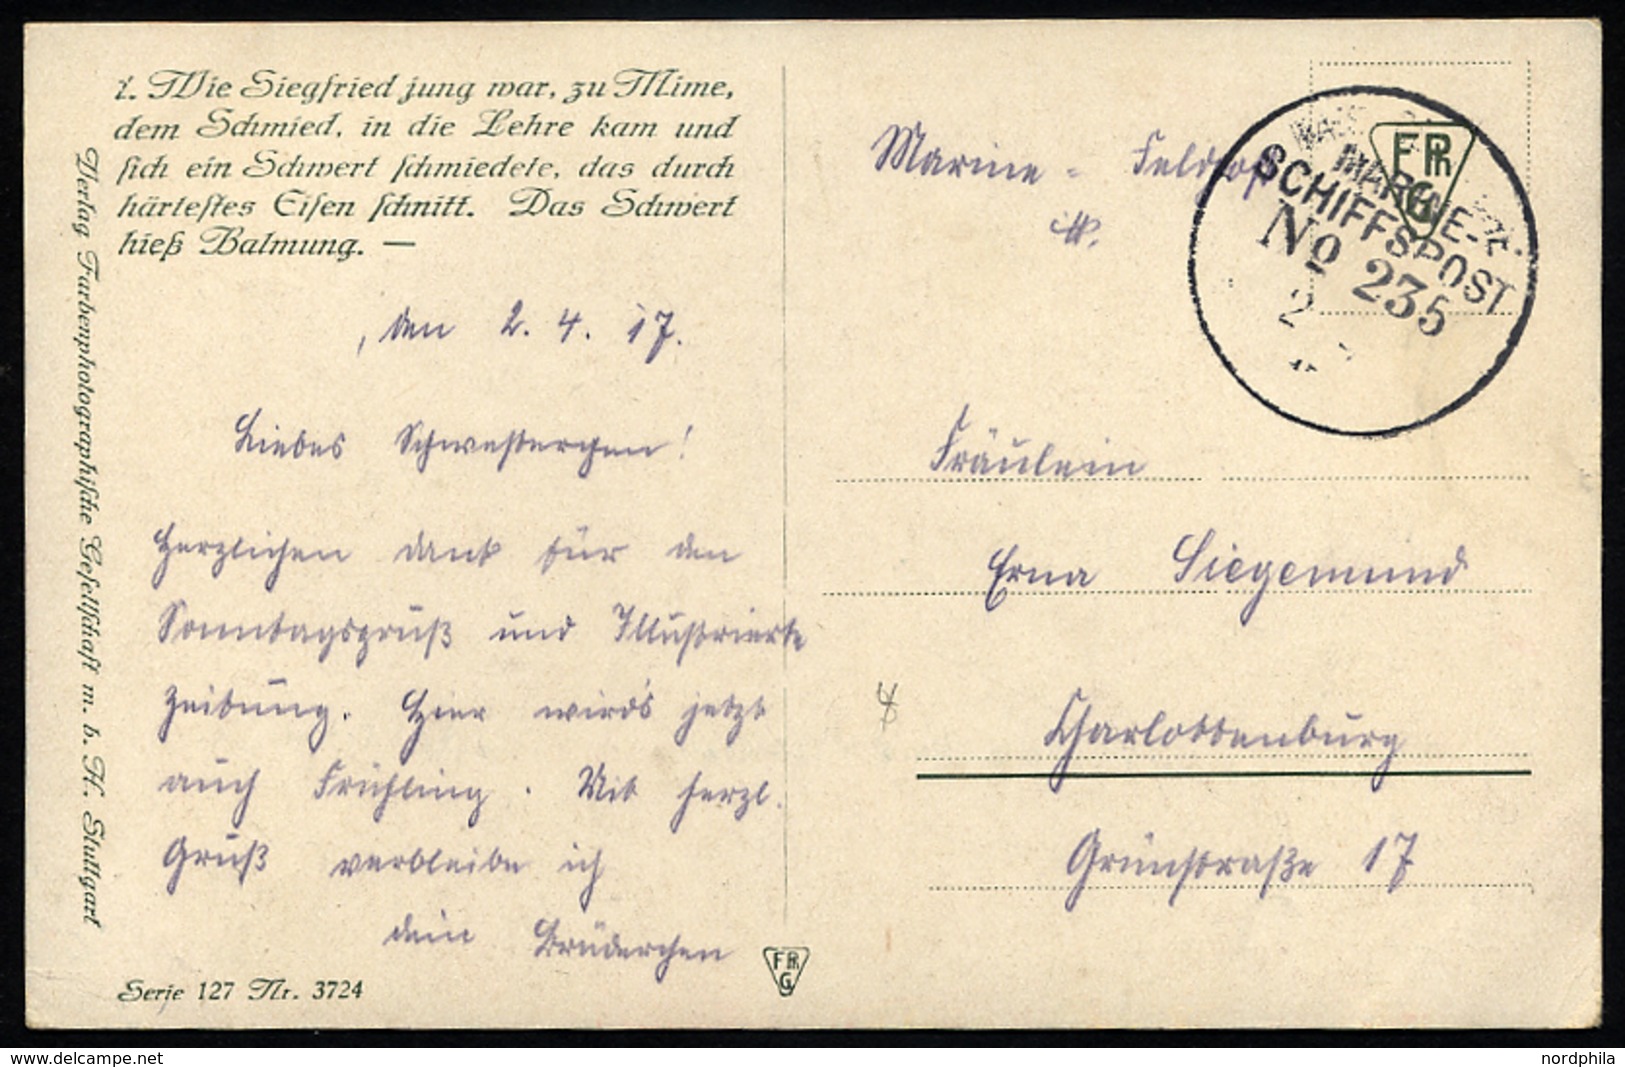 1. Wie Siegfried jung war, zu Mime,
dem Schmied, in die Lehre kam und
sich ein Schwert schmiedete, das durch
härtestes Eisen schnitt. Das Schwert
hieß Balmung. —
Verlag Farbenphotographische Gesellschaft m. b. H. Stuttgart
, den 2. 4. 17.
Liebes Schwesterchen!
Herzlichen Dank für den
Sonntagsgruß und Illustrierte
Zeitung. Hier wird's jetzt
auch Frühling. Mit herzl.
Gruß verbleibe ich
dein Brüderchen
Serie 127 Nr. 3724
FPhG
Marine - Feldpost
FPhG
MARINE-
SCHIFFSPOST
No 235
2
Fräulein
Erna Siegemund
Charlottenburg
Grünstraße 17
nordphila
delcampe.net